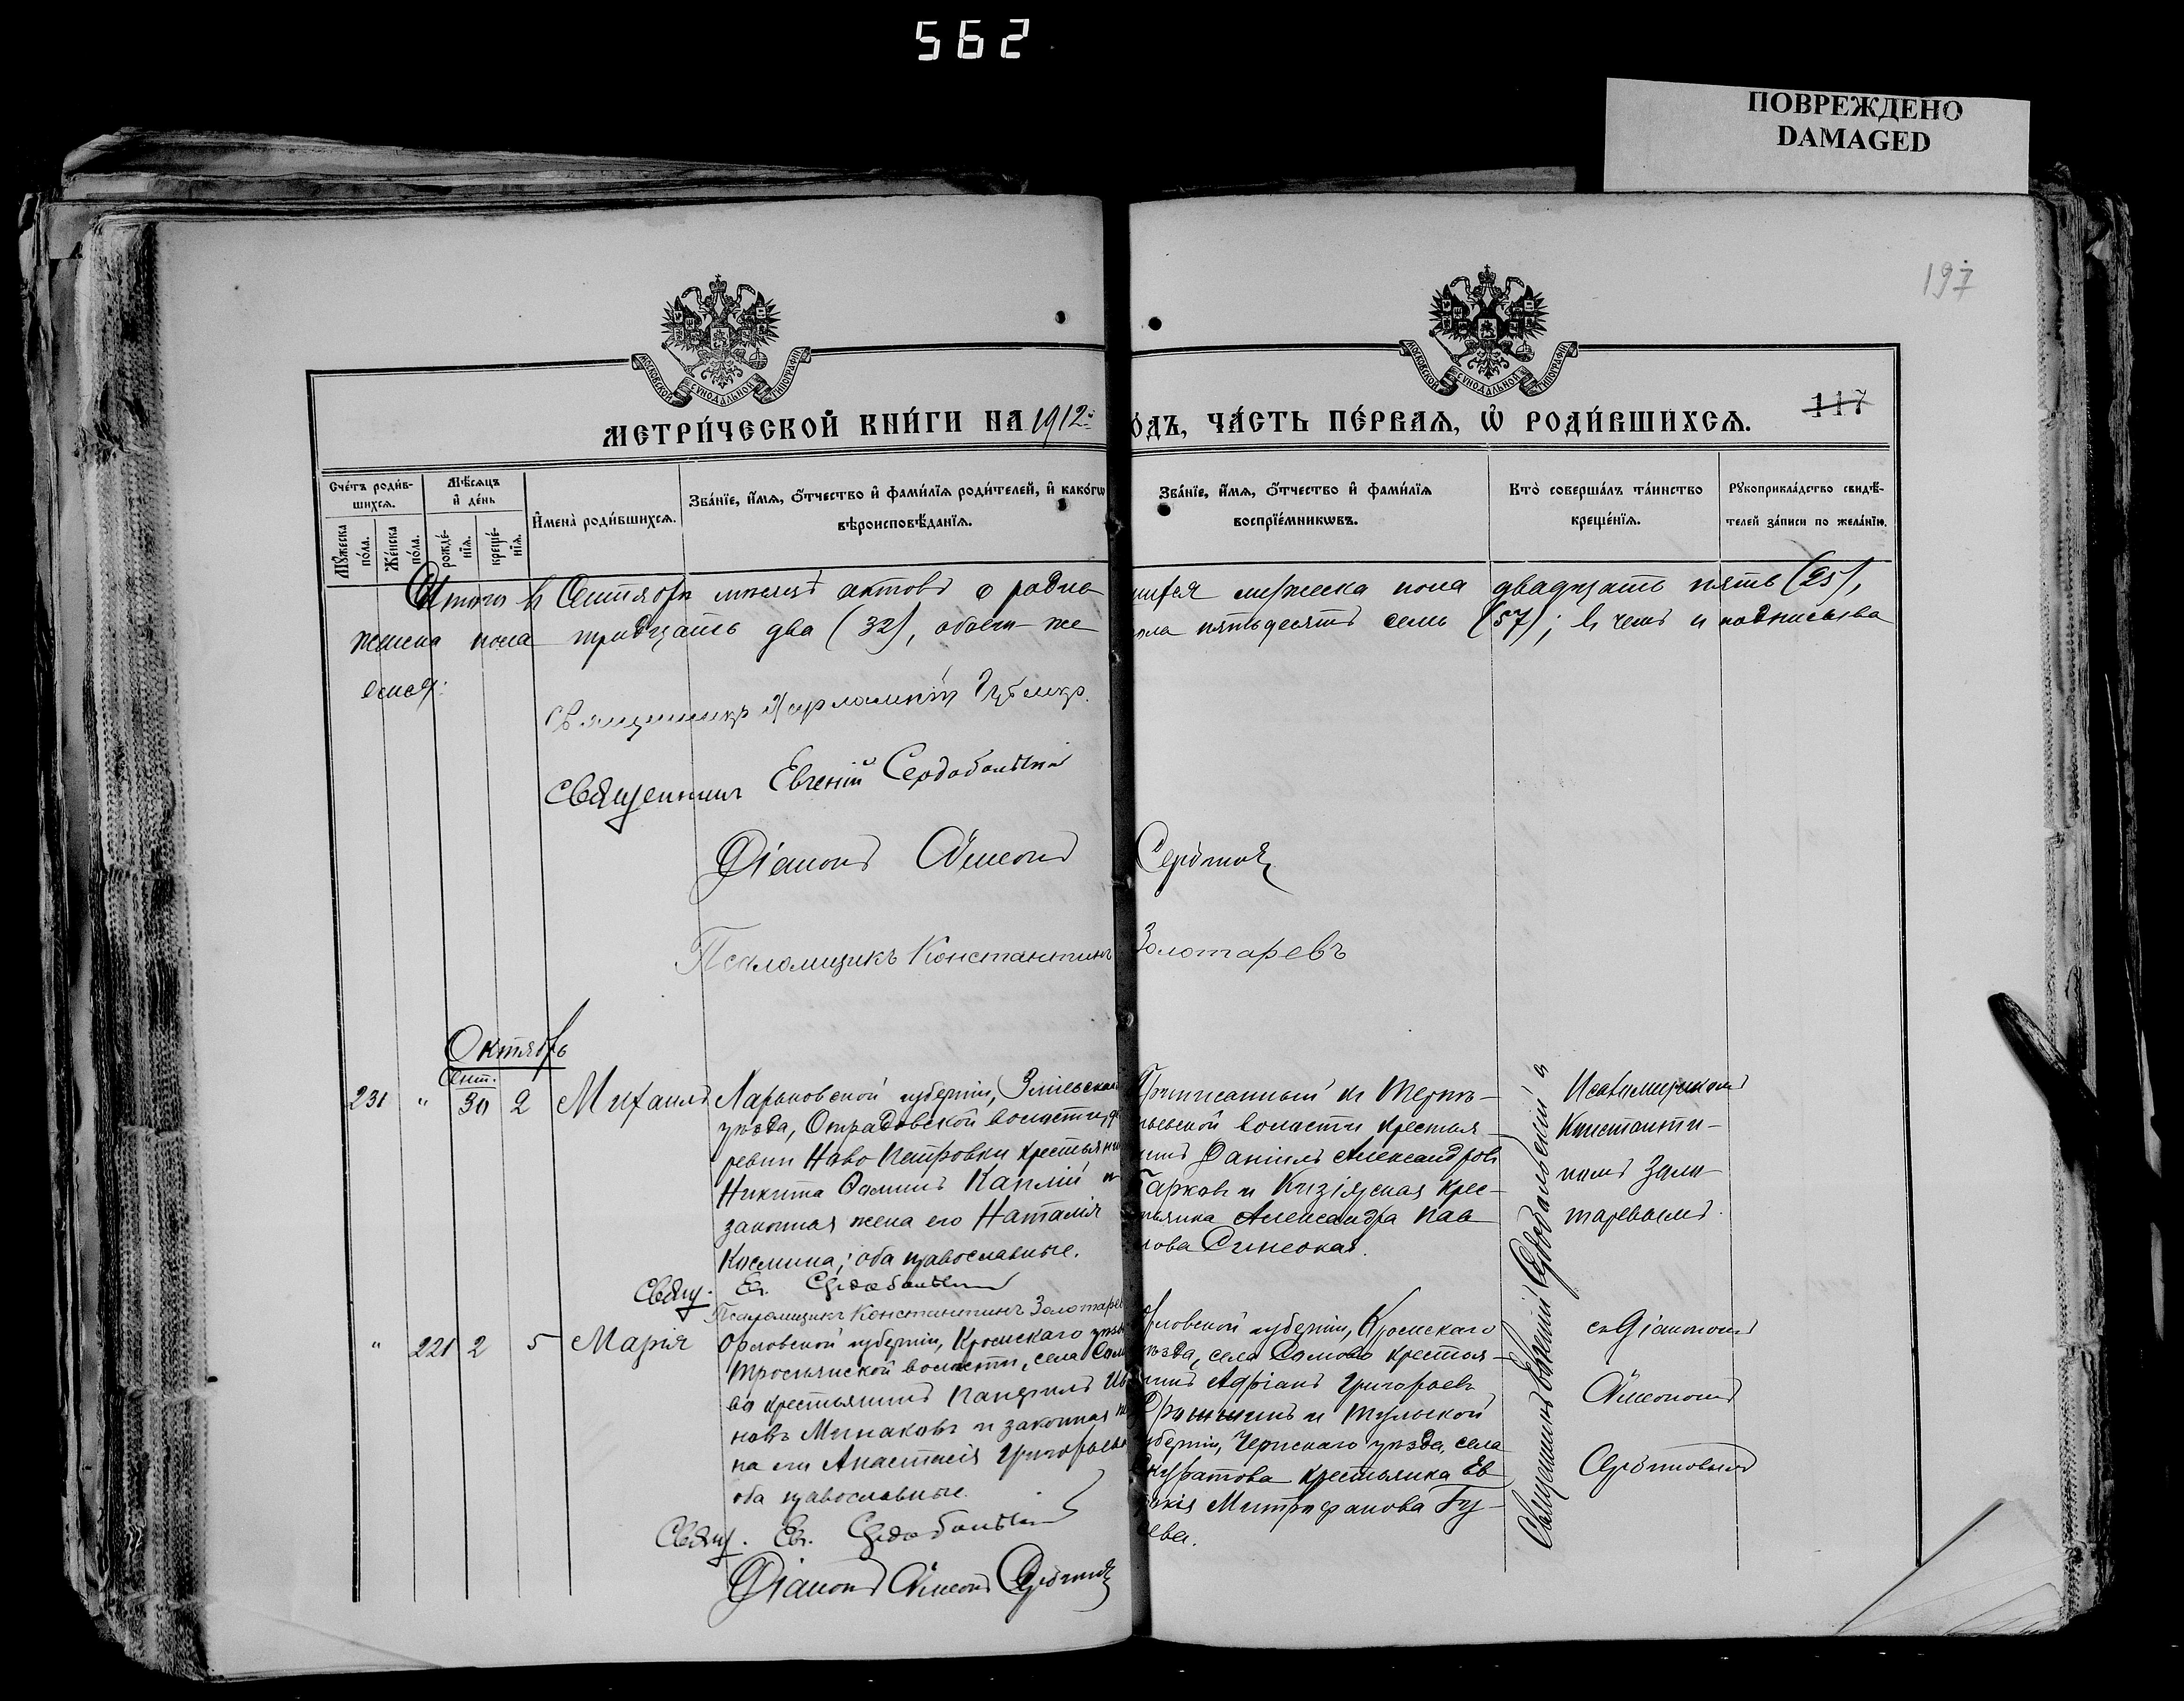 562
ПОВРЕЖДЕНО
DAMAGED
197
МОСКОВСКОЙ СѴНОДАЛЬНОЙ ТИПОГРАФІИ
МОСКОВСКОЙ СѴНОДАЛЬНОЙ ТИПОГРАФІИ
МЕТРИ́ЧЕСКОЙ КНИ́ГИ НА 1912
ОДЪ, ЧА́СТЬ ПЕ́РВАѦ, Ѽ РОДИ́ВШИХСѦ.
117
Сче́тъ роди́в-
шихсѧ.
Мѣ́сѧцъ
и҆ де́нь
Мꙋ́жеска
по́ла.
Же́нска
по́ла.
рожде́-
нїѧ.
креще́-
нїѧ.
И҆мена̀ роди́вшихсѧ.
Зва́нїе, и҆́мѧ, ѻ҆́тчество и҆ фами́лїѧ роди́телей, и҆ како́гѡ
вѣроисповѣ́данїѧ.
Зва́нїе, и҆́мѧ, ѻ҆́тчество и҆ фами́лїѧ
воспрїе́мникѡвъ.
Кто̀ соверша́лъ та́инство
креще́нїѧ.
Рꙋкоприкла́дство свидѣ́-
телей за́писи по жела́нїю.
Итого в Сентябре месяце актовъ о родив-
шихся мужеска пола двадцать пять (25),
женска пола тридцать два (32), обоего же
пола пятьдесятъ семь (57); в чемъ и подписыва
емся:
Священникъ Харлампій
Священникъ Евгеній Сердобольскій
Діаконъ Симеонъ
Псаломщикъ Константинъ Золотаревъ
Октябрь
231 " Сент. 30 2 Михаилъ
Харьковской губерніи, Зміевскаго
уѣзда, Отрадовской волости, де
ревни Ново Петровки крестьянин
Никита Ѳоминъ Каплій и
законная жена его Наталія
Космина; оба православные.
Свящ. Ев. Сердобольскій
Псаломщикъ Константинъ Золотарев
Приписанный къ Терпѣ-
ньевской волости крестья-
нинъ Даніилъ Александровъ
Гарковъ и Кизіярская крес-
тьянка Александра Пав
лова
Священникъ Евгеній Сердобольскій
с
Псаломщикомъ
Константи-
номъ Золо-
таревымъ.
" 221 2 5 Марія
Орловской губерніи, Кромскаго уѣзд
Троснянской волости, села Сом
во крестьянинъ Панфилъ Ив
новъ Минаковъ и законная же
на его Анастасія Григорьева
оба православные.
Свящ. Ев. Сердобольскій
Діаконъ Симеонъ
Орловской губерніи, Кромскаго
уѣзда, села Сомово крестья-
нинъ Адріанъ Григорьевъ
и Тульской
губерніи, Чернскаго уѣзда, села
Скуратова крестьянка Ев
докія Митрофанова Гу-
сева.
съ Діакономъ
Симеономъ